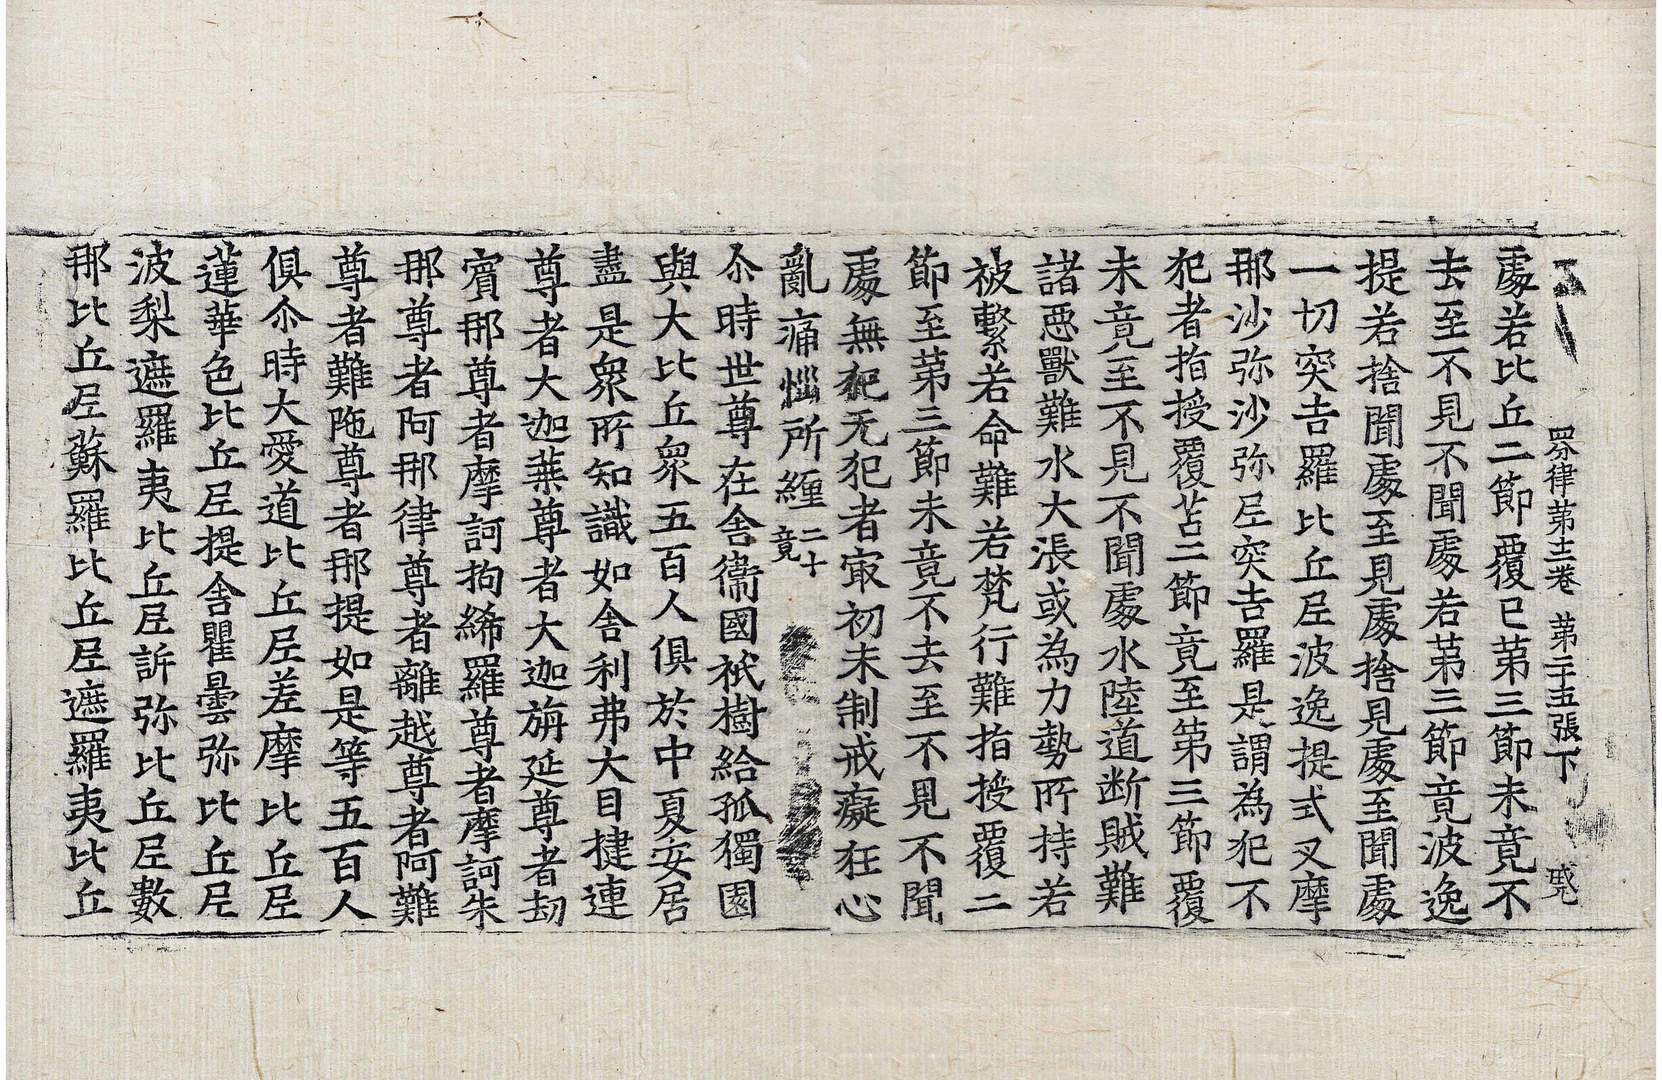 四分律第十二卷 第二十五張下 嘅
處若比丘二節覆已第三節未竟不
去至不見不聞處若第三節竟波逸
提若捨聞處至見處捨見處至聞處
一切突吉羅比丘尼波逸提式叉摩
那沙弥沙弥尼突吉羅是謂為犯不
犯者指授覆苫二節竟至第三節覆
未竟至不見不聞處水陸道断賊難
諸惡獸難水大漲或為力勢所持若
被繫若命難若梵行難指授覆二
節至苐三節未竟不去至不見不聞
處無犯无犯者㝡初未制戒癡狂心
亂痛惱所纏二十竟
尒時世尊在舍衞國祇樹給孤獨園
與大比丘衆五百人俱於中夏安居
盡是衆所知識如舍利弗大目揵連
尊者大迦葉尊者大迦旃延尊者劫
賓那尊者摩訶拘絺羅尊者摩訶朱
那尊者阿那律尊者離越尊者阿難
尊者難陁尊者那提如是等五百人
俱尒時大愛道比丘尼差摩比丘尼
蓮華色比丘尼提舍瞿曇弥比丘尼
波梨遮羅夷比丘尼訴弥比丘尼數
那比丘尼蘇羅比丘尼遮羅夷比丘